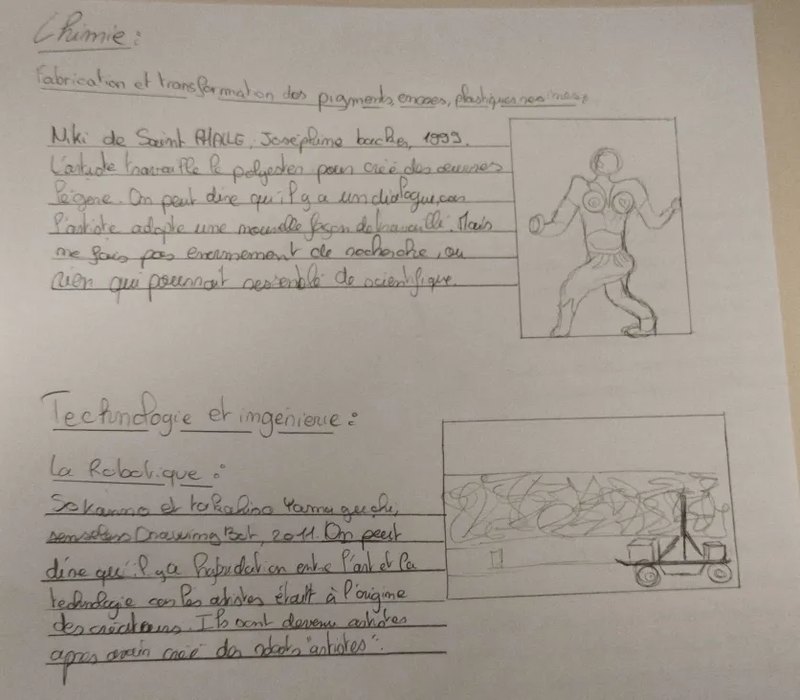 Chimie :
Fabrication et transformation des pigments, encres, plastiques
Niki de Saint PHALLE, Joséphine 1999.
L'artiste travaille le polyester pour créé des oeuvres
légère. On peut dire qu'il y a un dialogue, car
l'artiste adopte une nouvelle façon de travaillé. Mais
ne fais pas énormément de recherche, ou
rien qui pourrait ressemblé de scientifique.
Technologie et ingénierie :
La Robotique :
So Kanno et Takahiro Yamaguchi,
senseless Drawing Bot, 2011. On peut
dire qu'il y a entre l'art et la
technologie car les artistes était à l'origine
des créateurs. Ils sont devenu artistes
apres avoir créé des robots "artistes".